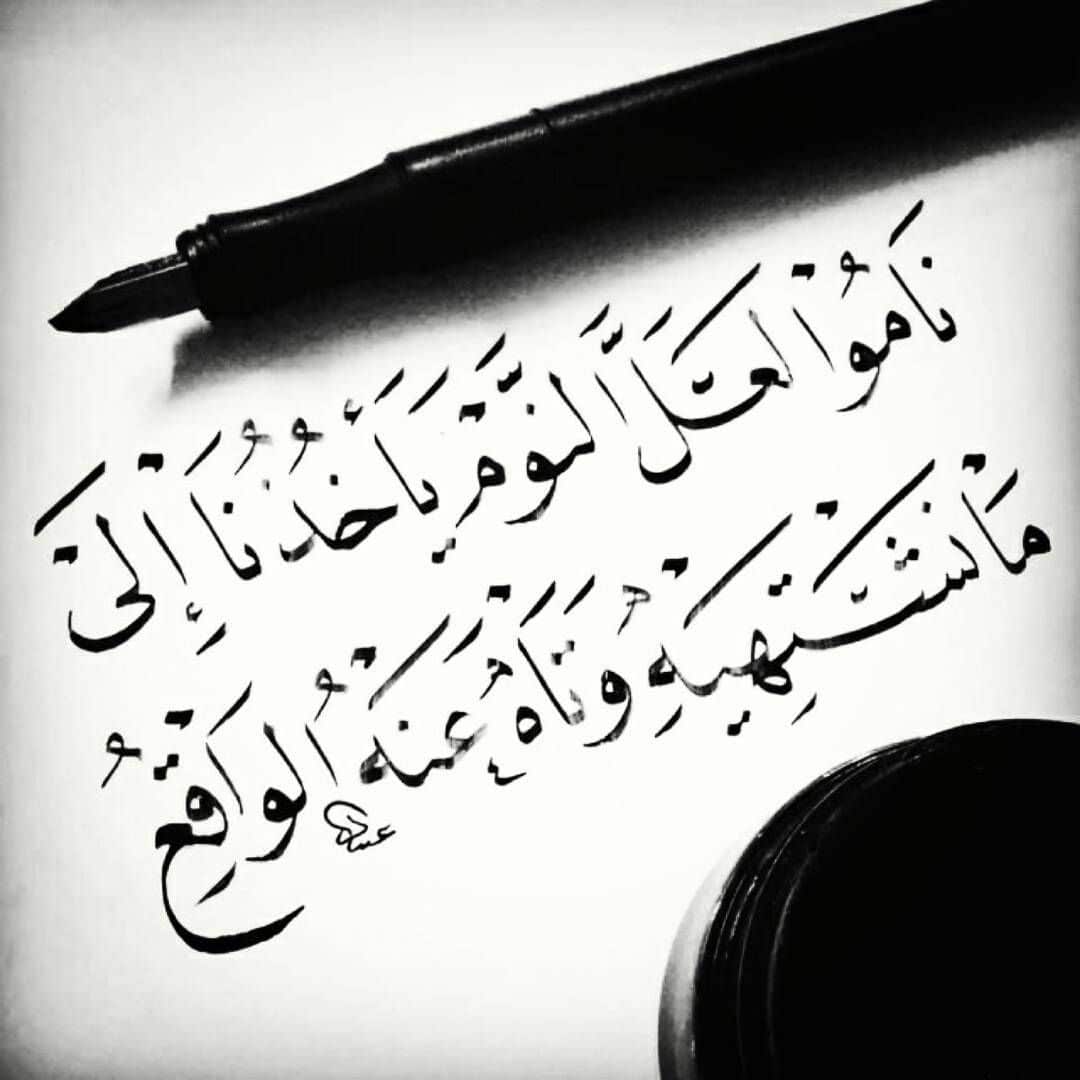 نَامُوْا لعَلَّ النَّوْمَ يَأْخُذُنَا إِلَىْ
مَاْ نَشْتَهِيْهِ وَتَاْهَ عَنْهُ الْوَاْقِعُ